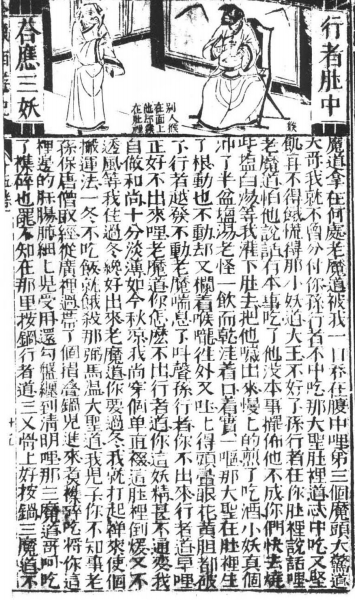 行者肚中
答應三妖
猴
別人猴
在面上
他却猴
在肚裡
魔道拿在何處老魔道被我一口吞在腹中哩第三個魔頭大驚道
大哥我就不曾分付你孫行者不中吃那大聖肚裡道忒中吃又堅
飢再不得餓慌得那小妖道大王不好了孫行者在你肚裡說話哩
老魔道怕他說話有本事吃了他沒本事擺佈他不成你們快去燒
些塩白湯等我灌下肚去把他噦出來慢上的煎了吃酒小妖真個
冲了半盆塩湯老怪一飲而乾洼着口着實一嘔那大聖在肚裡生
了根動也不動却又攔着喉嚨往外又吐上得頭暈眼花黃胆都破
了行者越發不動老魔喘息了叫聲孫行者你不出來行者道早哩
正好不出來哩老魔道你怎麽不出行者道你這妖精甚不通變我
自做和尚十分淡薄如今秋凉我尚穿個单直裰這肚裡到煖又不
透風等我住過冬纔好出來老魔道你要過冬我就打起禪來使個
搬運法一冬不吃飯就餓殺那弼馬温大聖道我兒子你不知事老
孫保唐僧取經從廣裡過帶了個摺疊鍋兒進來煑襍碎吃將你這
裡邊的肝腸肚肺細上兒受用還勾盤纏到清明哩那二魔道哥呵吃
了襍碎也罷不知在那里按鍋行者道三叉骨上好按鍋三魔道不